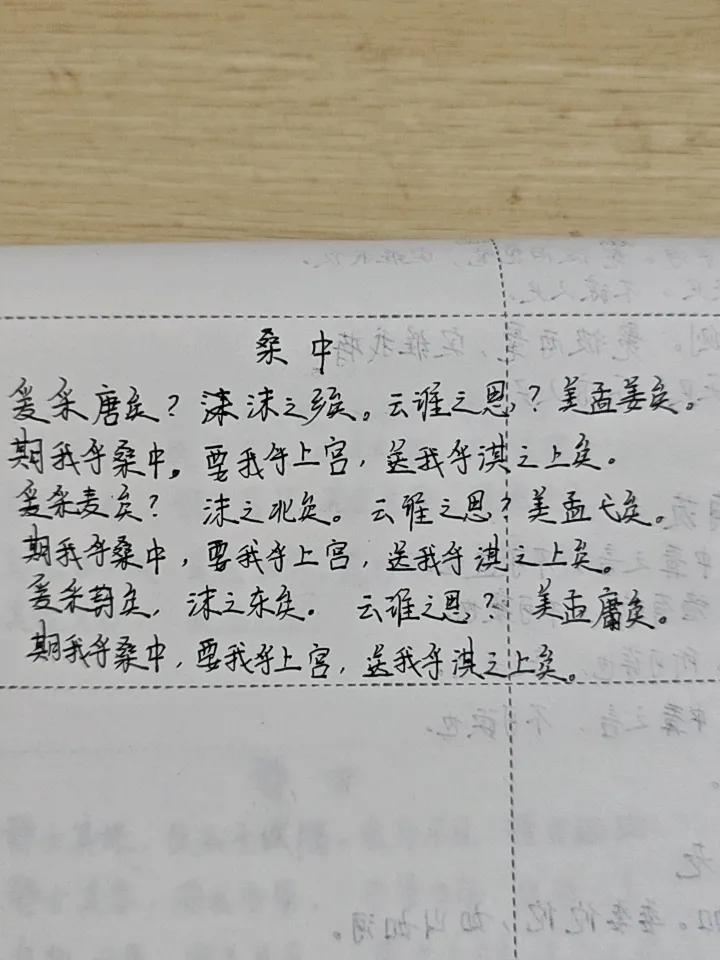 桑中
爰采唐矣？沬沬之乡矣。云谁之思？美孟姜矣。
期我乎桑中。要我乎上宫，送我乎淇之上矣。
爰采麦矣？沬之北矣。云谁之思？美孟弋矣。
期我乎桑中，要我乎上宫，送我乎淇之上矣。
爰采葑矣，沬之东矣。云谁之思？美孟庸矣。
期我乎桑中，要我乎上宫，送我乎淇之上矣。